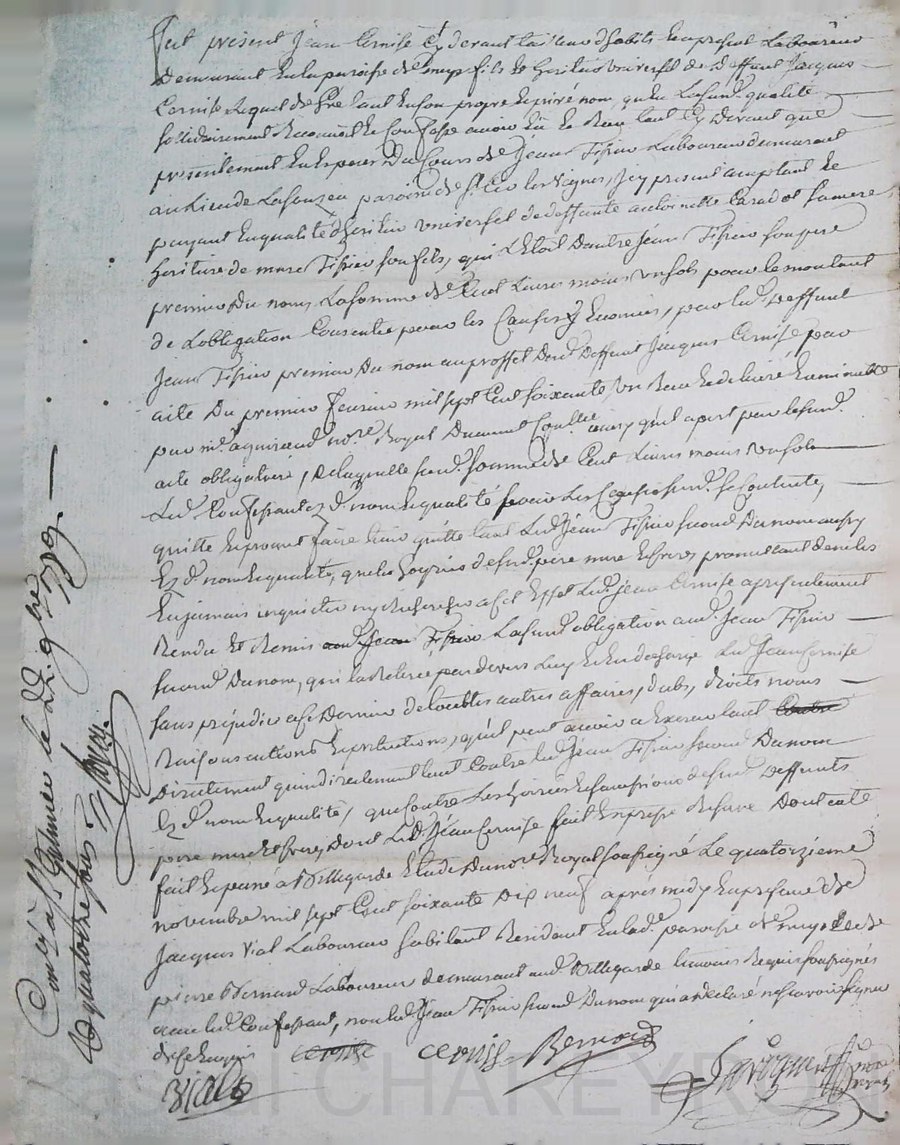 fut présent Jean Cernise cy devant tailleur d'habits et a present Laboureur
Demeurant en la paroisse de fils et heritier universel de deffunt Jacques
Cernise Lequel de gré tant en son propre et privé nom, qu'en La susd. qualité
solidairement Reconnoit et Confesse avoir eu et Receu tant cy devant que
presentement en especes du Cours de Jean Tissier Laboureur demeurant
au Lieu de paroisse de St les vignes, icy present acceptant et
payant en qualité d'heritier universel de deffunte antoinette sa mere
heritiere de Tissier son fils, qui L'etoit d'autre Jean Tissier son pere
premier Du nom, La somme de Cent Livres moins un sols pour le montant
de Lobligation Consentie pour les Causes y Enoncées, par Led. Deffunt
Jean Tissier premier Du nom au proffit dud. Deffunt Jacques Cernise par
acte Du premier fevrier mil sept Cent soixante un Receu
par me. nore. Royal ainsy qu'il apert par le susd.
acte obligatoire, De laquelle susd. somme de Cent Livres moins un sols
Led. Confessant ez d. nom et qualité pour Les Causes susd. se Contente,
quitte et promet faire tenir quitte tant Led. Jean Tissier second Du nom aussy
Ez d. nom et qualité, que les hoyries de sesd. pere mere et freres promettant de ne les
En jamais inquieter ny Rechercher a cet Effet Led. Jean Cernise a presentement
Rendu et Remis aud. Jean Tissier La susd. obligation aud. Jean Tissier
second Du nom, qui La Retiré par devers Luy Led. Jean Cernise
sans prejudice a ce Dernier de toutes autres affaires, dubs, droits noms
Raisons actions et pretentions, qu'il peut avoir a Exercer tant Contre
Directement qu'indirectement tant Contre led. Jean Tissier second Du nom
Ez d. nom et qualité, que Contre Les hoiries et successions de sesd. Deffunts
pere mere et freres Dont Led. Jean Cernise fait Expresse Reserve Dont acte
fait et passé a Villegarde Etude Du nore. Royal soussigné Le quatorzieme
novembre mil sept Cent soixante Dix neuf après midy En presence de
Jacques Vial Laboureur habitant Residant en lad. paroisse de et de
pierre Bernard Laboureur demeurant aud. Villegarde temoins Requis soussignés
avec led. Confessant, non led. Jean Tissier second Du nom qui a declaré ne scavoir signer
de ce Enquis cernise cernise Bernard
Vial
Conlé a St le 22. 9bre 1779.
R quatorze sols
Pascal CHAREYRON